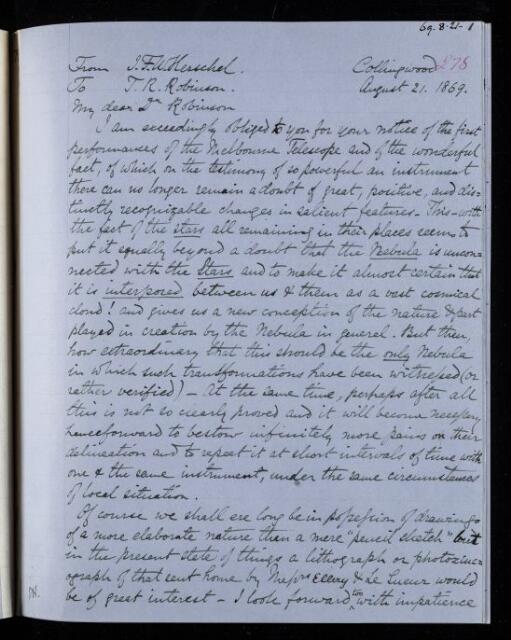 69-8-21-1
From J.F.W. Herschel.
Collingwood
278
To T.R. Robinson.
August 21. 1869.
My dear Dr. Robinson
I am exceedingly obliged to you for your notice of the first
performances of the Melbourne Telescope and of the wonderful
fact, of which on the testimony of so powerful an instrument
there can no longer remain a doubt of great, positive, and dis-
tinctly recognizable changes in salient features - This - with
the fact of the stars all remaining in their places seems to
put it equally beyond a doubt that the Nebula is uncon-
nected with the Stars and to make it almost certain that
it is interposed between us & them as a vast cosmical
cloud! and gives us a new conception of the nature & part
played in creation by the Nebula in general. But then,
how extraordinary that this should be the only Nebula
in which such transformations have been witnessed (or
rather verified) - At the same time, perhaps after all
this is not so clearly proved and it will become necessary
henceforward to bestow infinitely more pains on their
delineation and to repeat it at short intervals of time with
one & the same instrument, under the same circumstances
of local situation.
Of course we shall ere long be in possession of drawings
of a more elaborate nature than a mere "pencil sketch" but
in the present state of things a lithograph or photozinc-
ograph of that sent home by Messrs Ellery & Le Sueur would
be of great interest - I look forward too with impatience